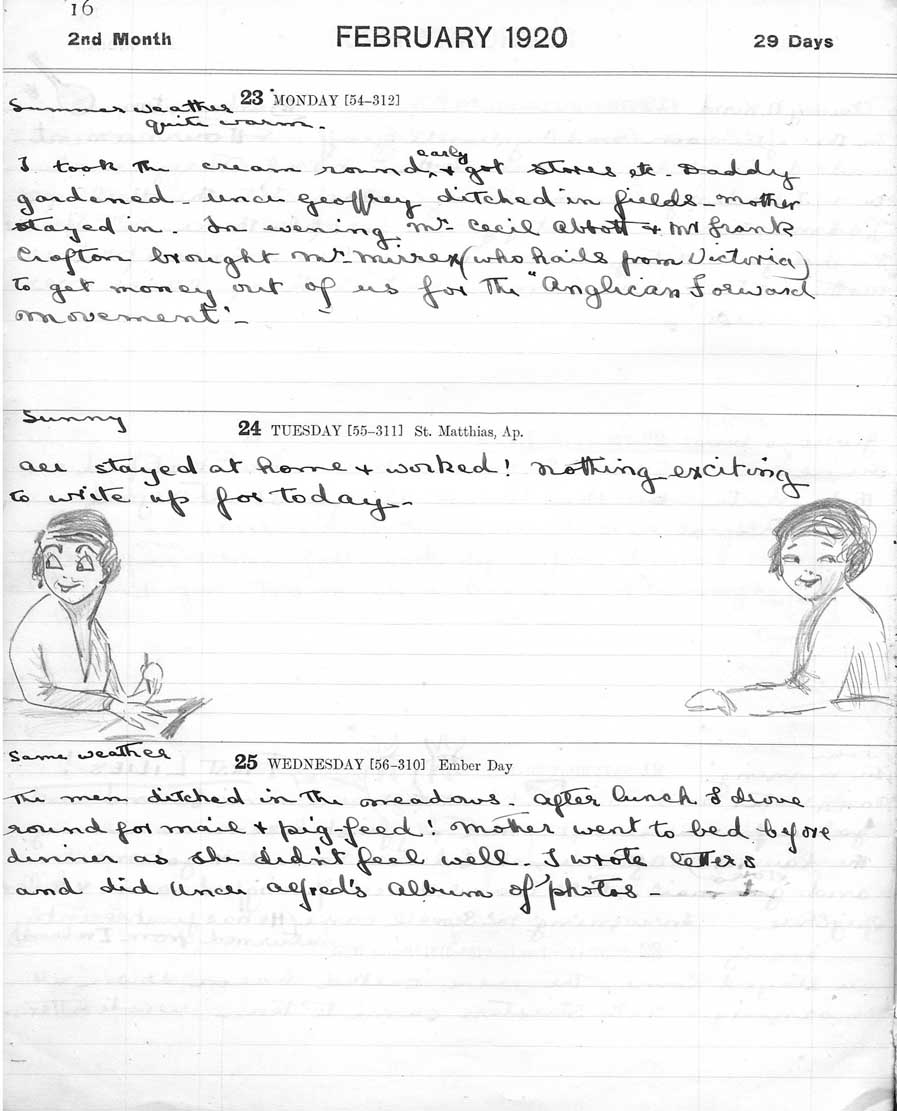 16
2nd Month FEBRUARY 1920 29 Days
23 MONDAY [54-312]
Summer weather
quite warm.
early
I took the cream round, & got stores etc. Daddy
gardened. Uncle Geoffrey ditched in fields - Mother
stayed in. In evening Mr. Cecil Abbott & Mr Frank
Crofton brought Mr. (who hails from Victoria)
to get money out of us for the "Anglican Forward
Movement'. -
Sunny
24 TUESDAY [55-311] St. Matthias, Ap.
All stayed at home & worked! Nothing exciting
to write up for today -
Same weather
25 WEDNESDAY [56-310] Ember Day
The men ditched in the meadows. After lunch I drove
round for mail & pig-feed! Mother went to bed before
dinner as she didn't feel well. I wrote letters
and did Uncle Alfred's album of photos -